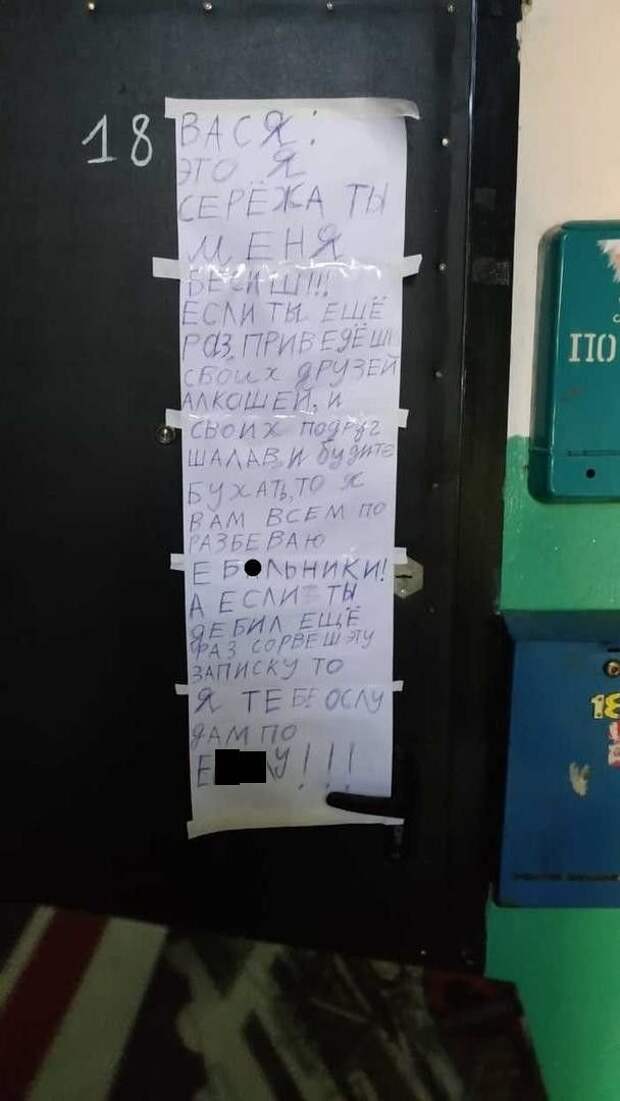 18
ВАСЯ:
ЭТО Я
СЕРЁЖА ТЫ
МЕНЯ
БЕСИШ!!!
ЕСЛИ ТЫ ЕЩЁ
РАЗ, ПРИВЕДЁШ
СВОИХ ДРУЗЕЙ
АЛКОШЕЙ, И
СВОИХ ПОДРУГ
ШАЛАВ, И БУДИТЕ
БУХАТЬ, ТО Я
ВАМ ВСЕМ ПО
РАЗБЕВАЮ
ЕБ ЛЬНИКИ!
А ЕСЛИ ТЫ
ДЕБИЛ ЕЩЁ
РАЗ СОРВЕШ ЭТУ
ЗАПИСКУ ТО
Я ТЕБЕ ОСЛУ
ДАМ ПО
Е У!!!
ПО
18